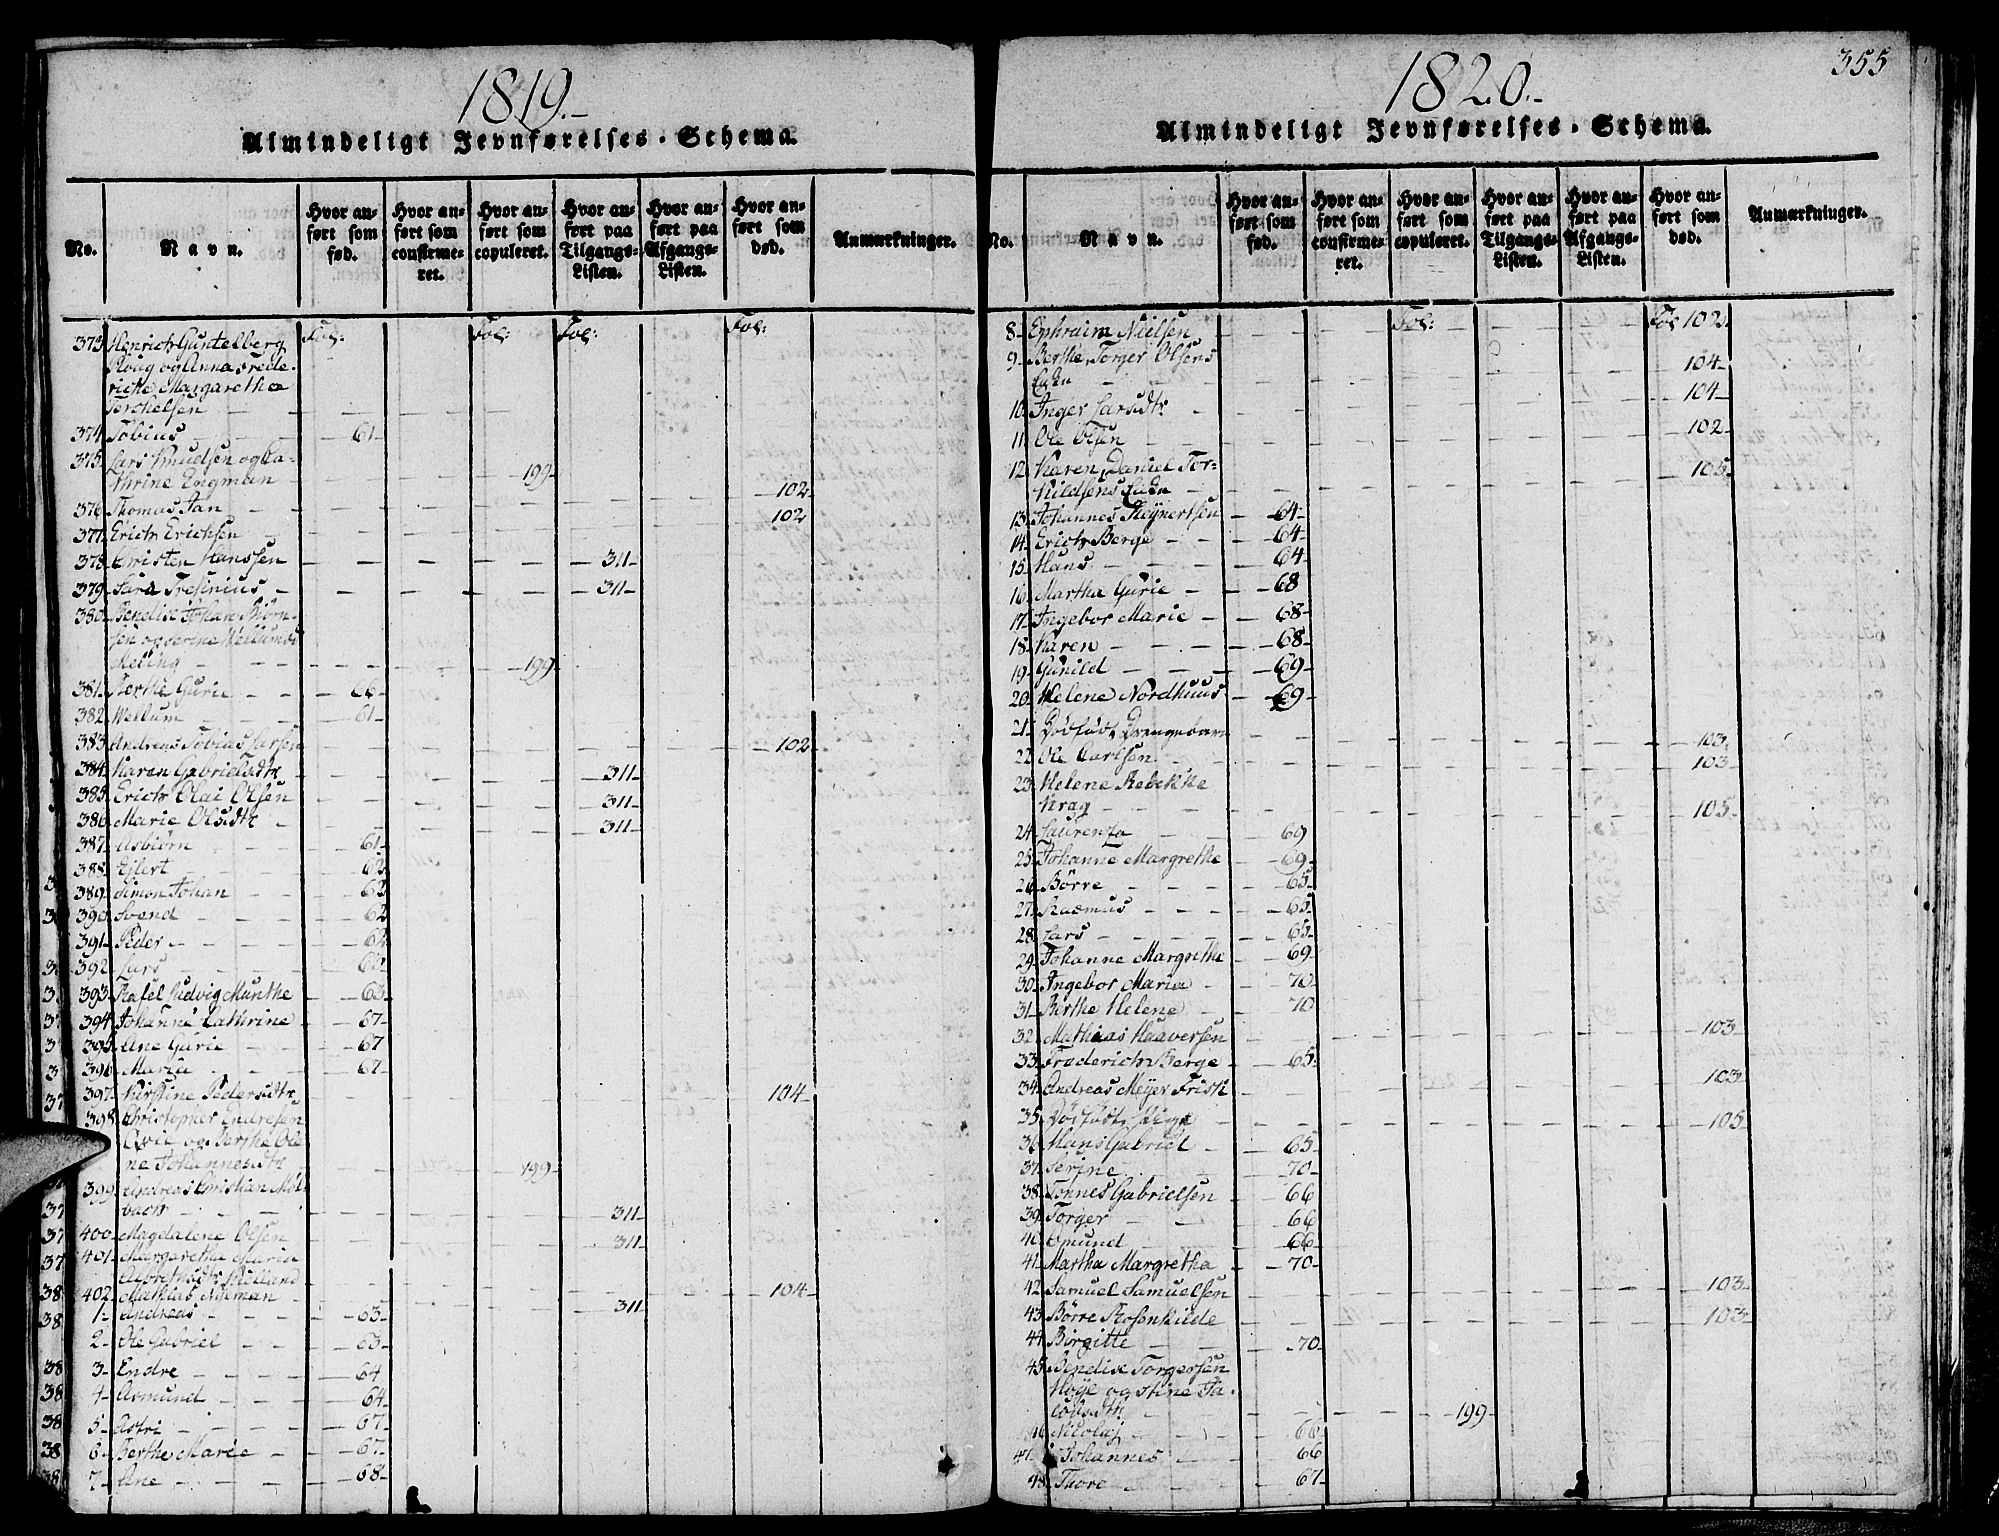 1819.-
Almindeligt Jevnførelses-Schema.
No.
Navn.
Hvor an-
ført som
fød.
Hvor an-
ført som
confirme-
ret.
Hvor an-
ført som
copuleret.
Hvor an-
ført paa
Tilgangs-
Listen.
Hvor an-
ført paa
Afgangs-
Listen.
Hvor an-
ført som
død.
Anmærkninger.
Fol: Fol: Fol: Fol:
373 Henrich Guntelberg
Ploug og Anna Frede-
riche Margaretha
Terchelsen
374 Tobias 61
375 Lars Knudsen og Ca-
thrine Engman 199
376 Thomas Jan 102
377 Erich Erichsen 102
378 Christen Hanssen 311
379 Sara Tresinius 311
380 Bendix Johan Biørn-
sen og Serine Wellumsd
Meling 199
381 Berthe Gurie 66
382 Wellum 61
383 Andreas Tobias Larsen 102
384 Karen Gabrielsdtr 311
385 Erich Olai Olsen 311
386 Marie Olsdtr 311
387 Asbiørn 61
388 Ejlert 62
389 Simon Johan 62
390 Svend 62
391 Peder 62
392 Lars 63
393 Rafel Ludvig Munthe 63
394 Johanne Cathrine 67
395 Ane Gurie 67
396 Maria 67
397 Kirstine Pedersdtr 104
398 Christopher Endresen
Qvie og Berthe Ole
ne Johannesdtr 199
399 Andreas Christian Møl
bach 311
400 Magdalene Olsen 311
401 Margaretha Maria
Albrethsdtr Kielland
402 Mathias Nyeman 104
1 Andreas 63 311
2 Ole Gabriel 63
3 Endre 64
4 Asmund 64
5 Astri 67
6 Berthe Marie 67
7 Ane 68
1820.-
355
Almindeligt Jevnførelses-Schema.
No.
Navn.
Hvor an-
ført som
fød.
Hvor an-
ført som
confirme-
ret.
Hvor an-
ført som
copuleret.
Hvor an-
ført paa
Tilgangs-
Listen.
Hvor an-
ført paa
Afgangs-
Listen.
Hvor an-
ført som
død.
Anmærkninger.
8 Ephraim Nielsen Fol: Fol 102
9 Berthe, Torger Olsens
Enke 104
10 Inger Larsdtr 104
11 Ole Olsen 102
12 Karen, Daniel Tor-
kildsens Enke 105
13 Johannes Reynertsen 64
14 Erich Berge 64
15 Hans 64
16 Martha Gurie 68
17 Ingebor Marie 68
18 Karen 68
19 Gunild 69
20 Helene Nordhuus 69
21 Dødfødt Drengebarn
22 Ole Carlsen 103
23 Helene Rebekke 103
Krag 105
24 Laurenza 69
25 Johanne Margrethe 69
26 Børre 65
27 Rasmus 65
28 Lars 65
29 Johanne Margrethe 69
30 Ingebor Maria 70
31 Berthe Helene 70
32 Mathias Haaversen 103
33 Frederich Berge 65
34 Andreas Meyer Frisk 103
35 Dødfødt Pige 105
36 Hans Gabriel 65
37 Serine 70
38 Tønnes Gabrielsen 66
39 Torger 66
40 Omund 66
41 Martha Margretha 70
42 Samuel Samuelsen 103
43 Børre Rosenkilde 103
44 Birgitte 70
45 Bendix Torgersen
Høye og Stine Ja-
cobsdtr 199
46 Nicolaj 66
47 Johannes 66
48 Thore 67